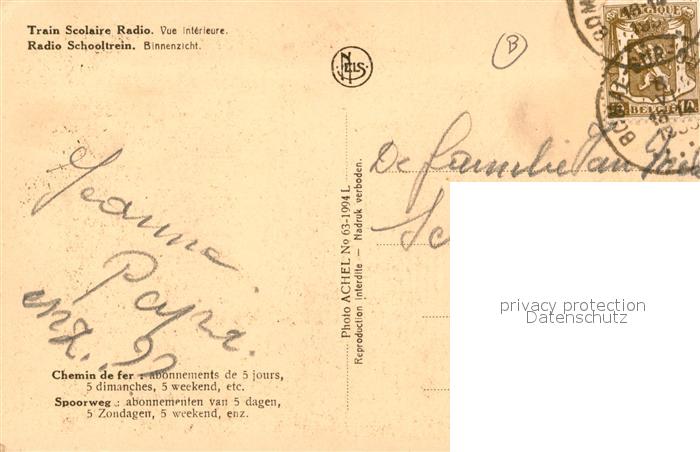 Train Scolaire Radio. Vue intérieure.
Radio Schooltrein. Binnenzicht.
NELS
B
BELGIQUE
BELGIE
De familie van
Jeanne
Papa.
enz...
Photo ACHEL No 63-1994 L
Reproduction interdite — Nadruk verboden.
privacy protection
Datenschutz
Chemin de fer : abonnements de 5 jours,
5 dimanches, 5 weekend, etc.
Spoorweg : abonnementen van 5 dagen,
5 Zondagen, 5 weekend, enz.